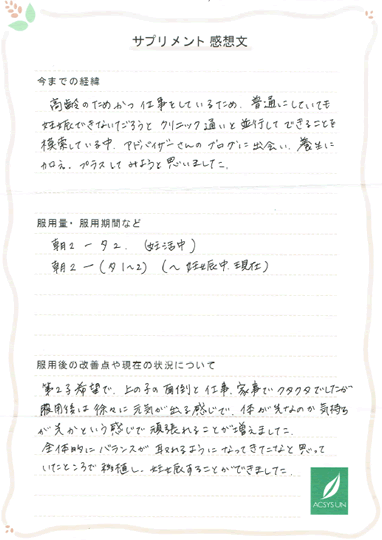 サプリメント 感想文
今までの経緯
高齢のためかつ仕事をしているため、普通にしていても
妊娠できないだろうと クリニック通いと並行してできることを
模索している中、アドバイザーさんのブログに出会い、養生に
加え、プラスしてみようと思いました。
服用量・服用期間など
朝2 ー 夕2 (妊活中)
朝2 ー (夕1〜2) (〜妊娠中、現在)
服用後の改善点や現在の状況について
第2子希望で、上の子の面倒と仕事、家事でクタクタでしたが
服用後は徐々に元気が出る感じで、体が先なのか気持ち
が先かという感じで頑張れることが増えました。
全体的にバランスが取れるようになってきたなと思って
いたところで移植し、妊娠することができました。
ACSYSUN